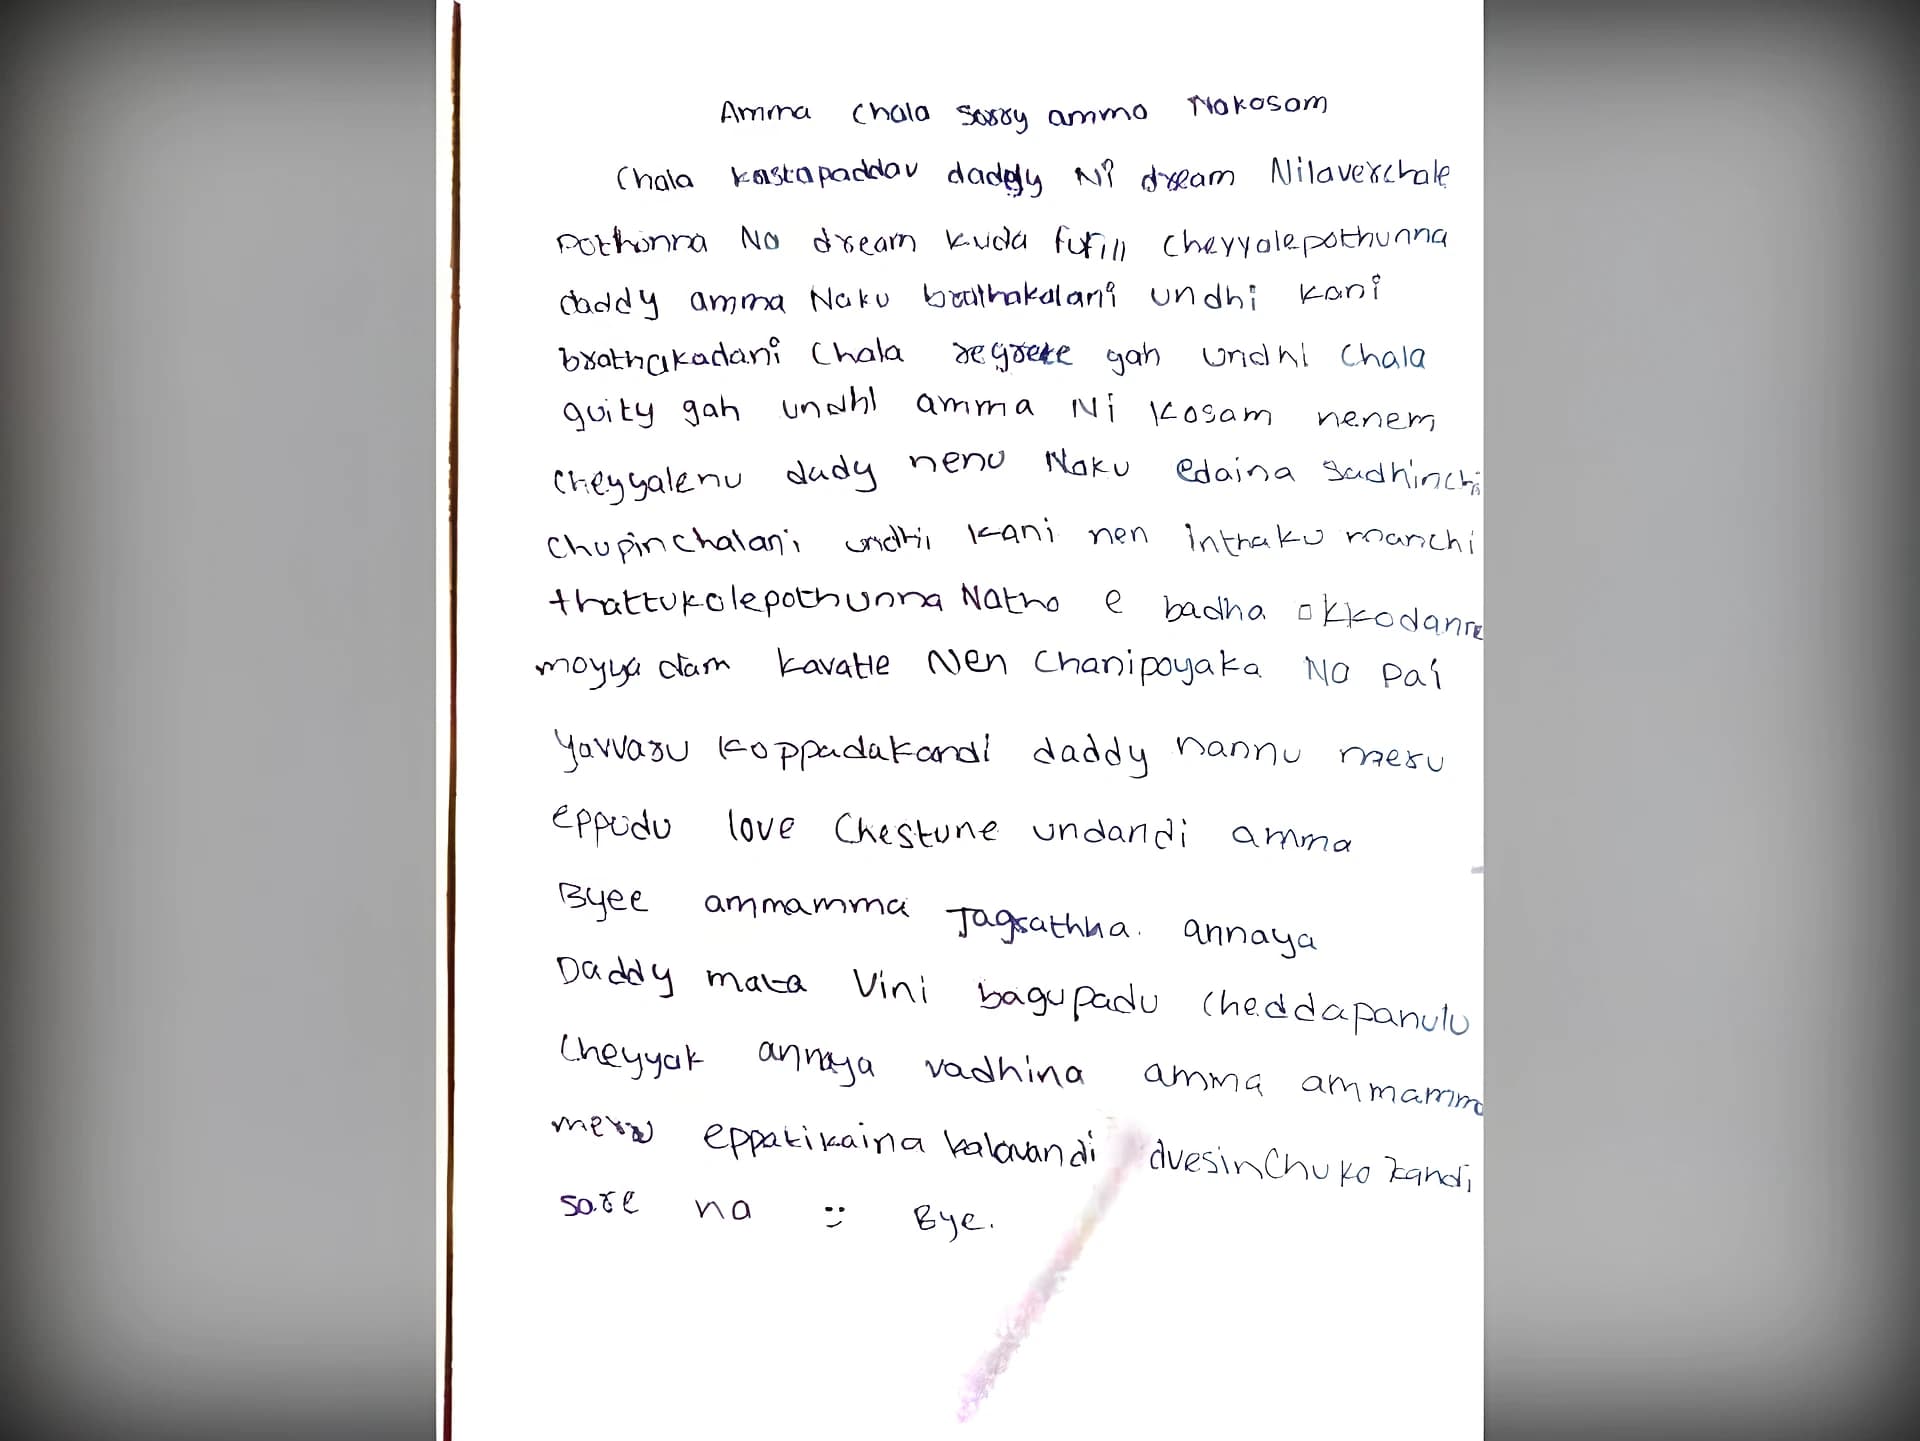 Amma chala sorry amma Nakosam
Chala kastapaddav daddy Ni dream Nilaverchale
pothunna Na dream kuda fufill cheyyalepothunna
daddy amma Naku brathakalani undhi kani
brathakadani chala regrete gah undhi chala
guity gah undhi amma Ni kosam nenem
cheyyalenu dady nenu Naku edaina sadhinchi
chupinchalani undhi kani nen inthaku manchi
thattukolepothunna Natho e badha okkodanne
moyya dam kavatle Nen Chanipoyaka Na pai
Yavvaru koppadakandi daddy nannu meru
eppudu love Chestune undandi amma
Byee ammamma Jagrathha. annaya
Daddy mata Vini bagupadu cheddapanulu
Cheyyak annaya vadhina amma ammamma
meru eppatikaina kalavandi dvesinchuko kandi
sare na :) Bye.